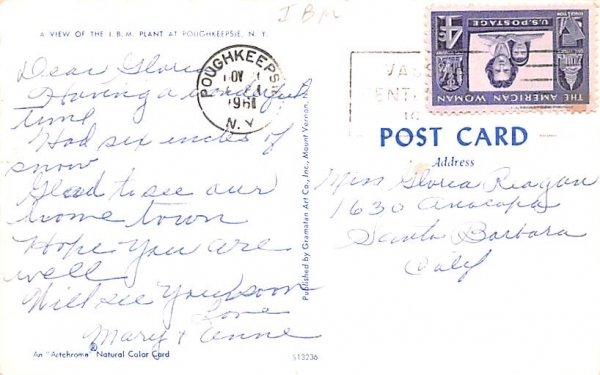 I B M
A VIEW OF THE I.B.M. PLANT AT POUGHKEEPSIE, N. Y.
Dear Gloria
Having a wonderful
time
Had six inches of
snow
Glad to see our
home town
Hope you are
well
Will see you soon
Love
Mary + Anne
An "Actchrome"® Natural Color Card
S13236
Published by Gramatan Art Co., Inc., Mount Vernon,
POUGHKEEPSIE
1961
N. Y.
4¢
U.S. POSTAGE
THE AMERICAN WOMAN
POST CARD
Address
Miss Gloria Reagan
1630 Anacapa
Santa Barbara
Calif